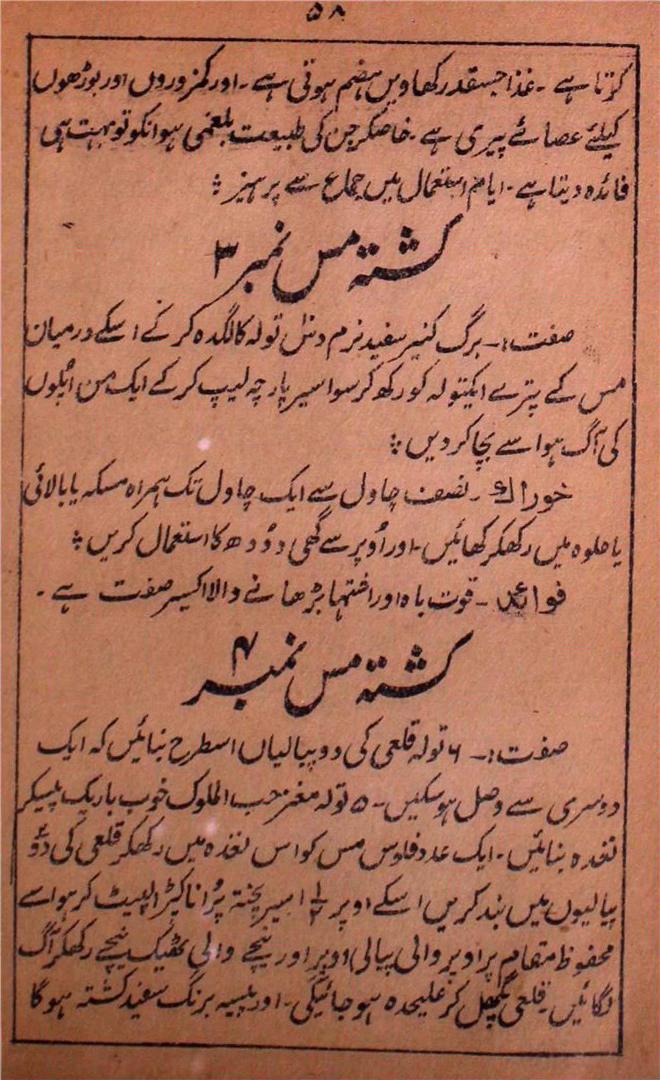 ۵۸
کرتا ہے ۔ غذا جسقدر کھاویں ہضم ہوتی ہے ۔ اور کمزوروں اور بوڑھوں
کیلئے عصائے پیری ہے ۔ خاصکر جن کی طبیعت بلغمی ہو انکو تو بہت ہی
فائدہ دیتا ہے ۔ ایام استعمال میں جماع سے پرہیز ؞
کشتہ مس نمبر ۳
صفت :۔ برگ کنیر سفید نرم دنل تولہ کا لگدہ کر کے اسکے درمیان
مس کے پترے ایکتولہ کو رکھ کر سوا سیر پارچہ لیپ کر کے ایک من اُپلوں
کی آگ ہوا سے بچا کر دیں ؞
خوراک ۔ نصف چاول سے ایک چاول تک ہمراہ مسکہ یا بالائی
یا حلوہ میں رکھکر کھائیں ۔ اور اُوپر سے گھی دُودھ کا استعمال کریں ؞
فوائد ۔ قوت باہ اور اشتہا بڑھانے والا اکسیر صفت ہے ۔
کشتہ مس نمبر ۴
صفت :۔ ۶ تولہ قلعی کی دو پیالیاں اسطرح بنائیں کہ ایک
دوسری سے وصل ہو سکیں ۔ ۵ تولہ مغز حب الملوک خوب باریک پیسکر
نغدہ بنائیں ۔ ایک عدد فلوس مس کو اس نغدہ میں رکھکر قلعی کی دُو
پیالیوں میں بند کریں اسکے اوپر ۱ ۱/۲ سیر پختہ پُرانا کپڑا لپیٹ کر ہوا سے
محفوظ مقام پر اوپر والی پیالی اوپر اور نیچے والی ٹھیک نیچے رکھکر آگ
لگائیں قلعی پگھل کر علیحدہ ہو جائیگی ۔ اور پیسہ برنگ سفید کشتہ ہوگا